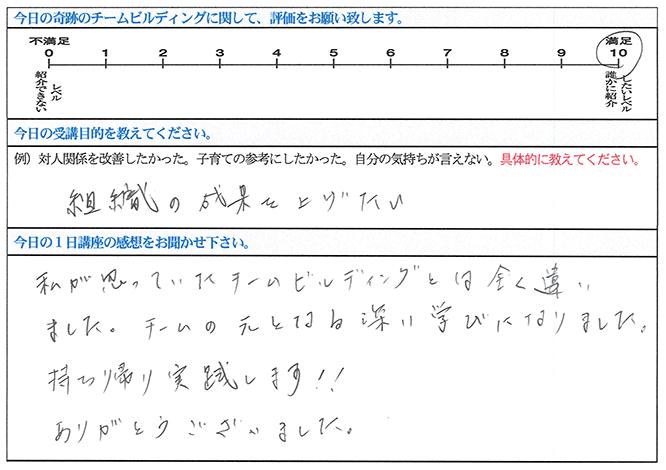 今日の奇跡のチームビルディングに関して、評価をお願い致します。
不満足 満足
0 1 2 3 4 5 6 7 8 9 10
紹介できない
レベル
誰かに紹介
したいレベル
今日の受講目的を教えてください。
例）対人関係を改善したかった。子育ての参考にしたかった。自分の気持ちが言えない。具体的に教えてください。
組織の成果を上げたい
今日の１日講座の感想をお聞かせ下さい。
私が思っていたチームビルディングとは全く違い
ました。チームの元となる深い学びになりました。
持ち帰り実践します!!
ありがとうございました。